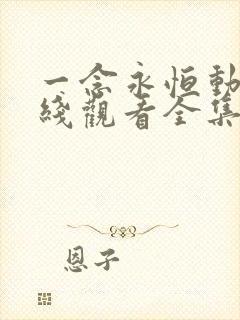 一念永恒動
綫觀看全集
恩子